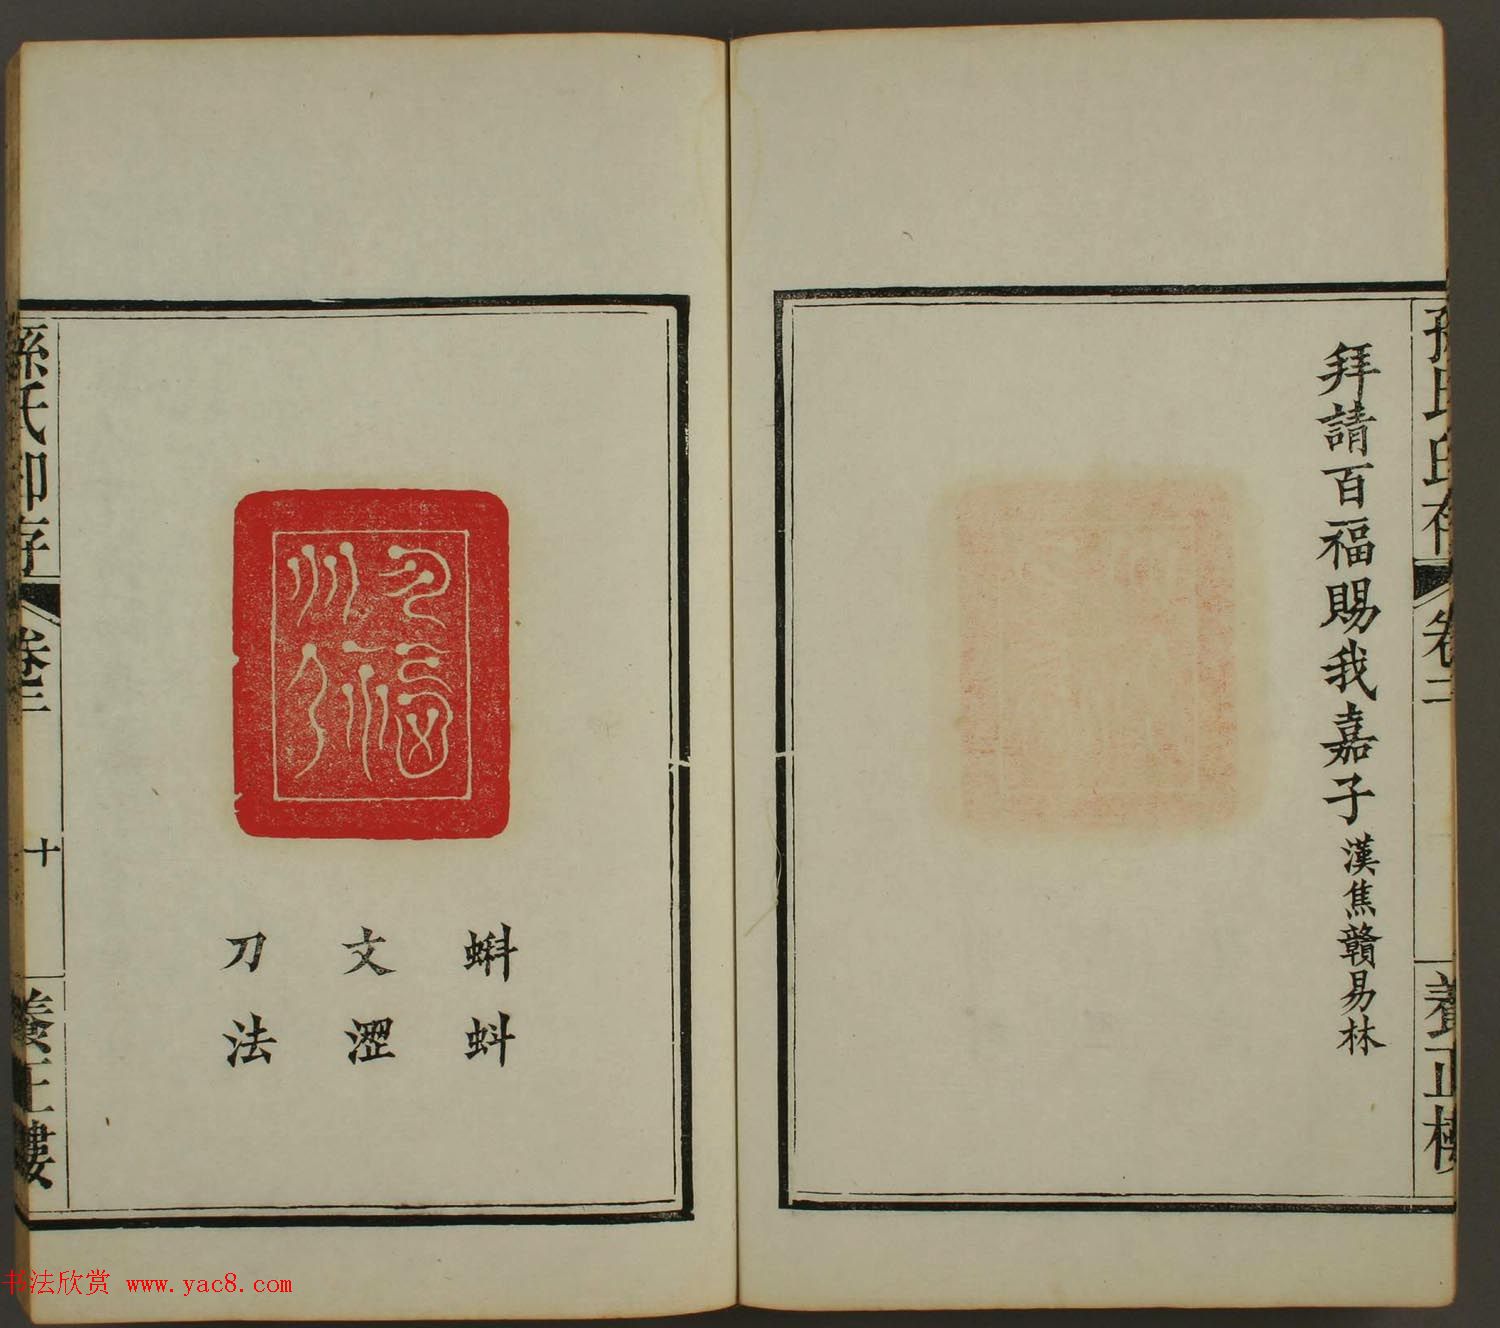 孫氏印存 卷二 養正樓
拜請百福賜我嘉子 漢焦贛易林
蝌蚪
文澀
刀法
孫氏印存 卷二 十 養正樓
书法欣赏 www.yac8.com